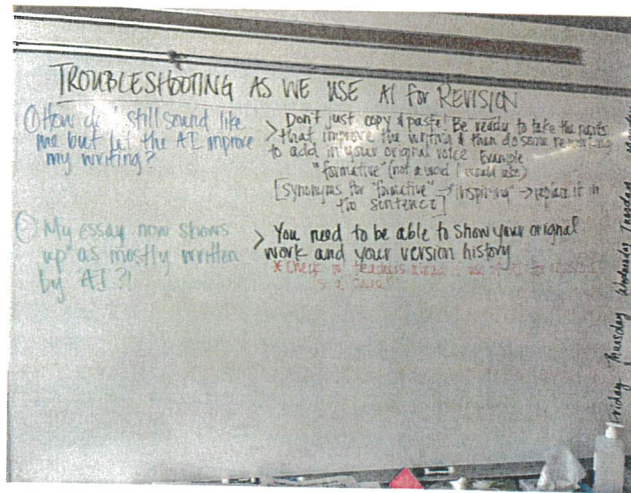 TROUBLESHOOTING AS WE USE AI for REVISION
① How do I still sound like
me but let the AI improve
my writing?
> Don't just copy & paste! Be ready to take the parts
that improve the writing & then do some reworking
to add in your original voice. Example
"formative" (not a word I would use)
[synonyms for "formative" → "inspiring" → replace it in
the sentence]
② My essay now shows
up as mostly written
by AI?!
> You need to be able to show your original
work and your version history
*Check
Friday Thursday Wednesday Tuesday